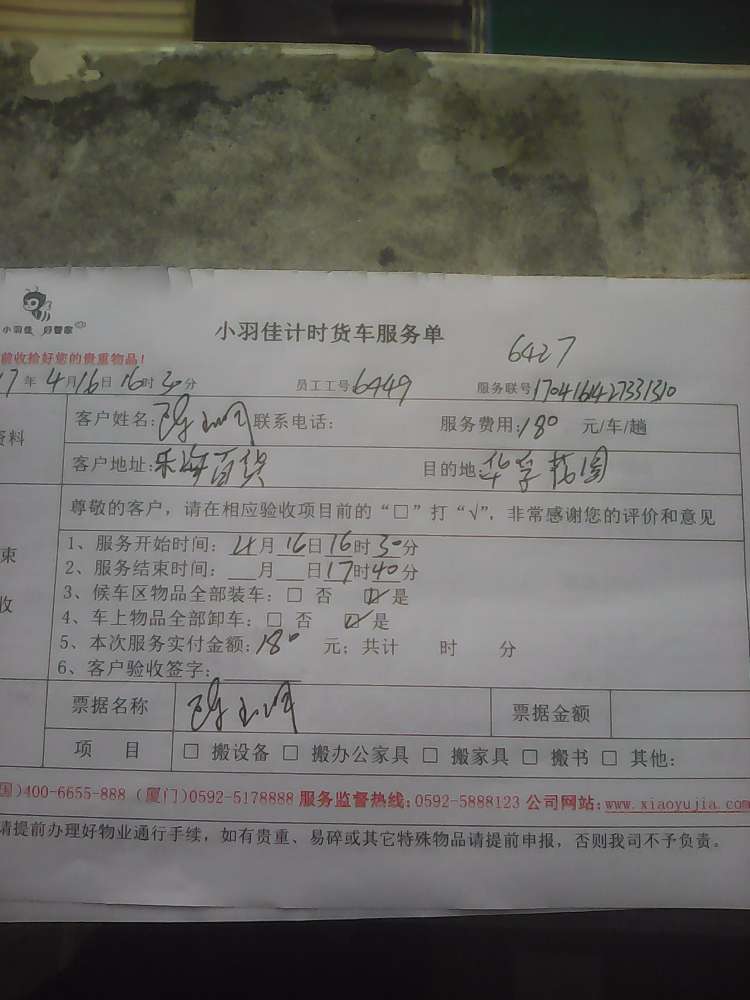 小羽佳 好管家
小羽佳计时货车服务单
6427
前收拾好您的贵重物品！
17年4月16日16时30分 员工工号6449 服务联号1704161427331310
资料
客户姓名: 联系电话: 服务费用:180 元/车/趟
客户地址:东海百货 目的地:华孚花园
尊敬的客户，请在相应验收项目前的“□”打“√”，非常感谢您的评价和意见
束
收
1、服务开始时间：4月16日16时30分
2、服务结束时间：___月___日17时40分
3、候车区物品全部装车：□ 否 ☑ 是
4、车上物品全部卸车：□ 否 ☑ 是
5、本次服务实付金额：180 元；共计 时 分
6、客户验收签字：
票据名称 票据金额
项 目 □ 搬设备 □ 搬办公家具 □ 搬家具 □ 搬书 □ 其他:
国)400-6655-888 (厦门)0592-5178888 服务监督热线:0592-5888123 公司网站:www.xiaoyujia.com
请提前办理好物业通行手续，如有贵重、易碎或其它特殊物品请提前申报，否则我司不予负责。